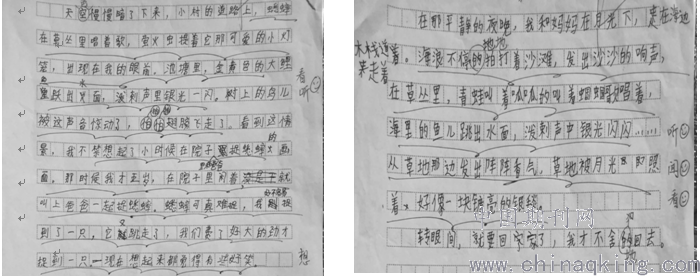 天空慢慢暗了下来，小村的道路上，蟋蟀
在草丛里唱着歌，萤火虫提着它那可爱的小灯
笼，出现在我的眼前。池塘里，金黄色的大鲤
鱼跃出水面，泼剌声里银光一闪。树上的鸟儿
被这声音惊动了，拍拍翅膀飞走了。看到这情
景，我不禁想起了小时候在院子里捉蟋蟀的画
面，那时候我才五岁，在院子里闲着
叫上爸爸一起捉蟋蟀，蟋蟀可真难捉，我刚捉
到了一只，它又跳走了，我们费了好大的劲才
捉到一只。现在想起来都觉得有些好笑
看
听
想
在那平静的夜晚，我和妈妈在月光下，走在海边
木栈道
来走着
着。海浪不停地拍打着沙滩，发出沙沙的响声，
在草丛里，青蛙叫着呱呱的叫着蝈蝈歌唱着，
海里的鱼儿跳出水面，泼剌声中银光闪闪……
从草地那边发出阵阵香气，草地被月光照
着，好像一块镶亮的银毯。
转眼间，就要回家了，我才不舍的回去。
听
闻
看
中国期刊网
www.chinaqking.com